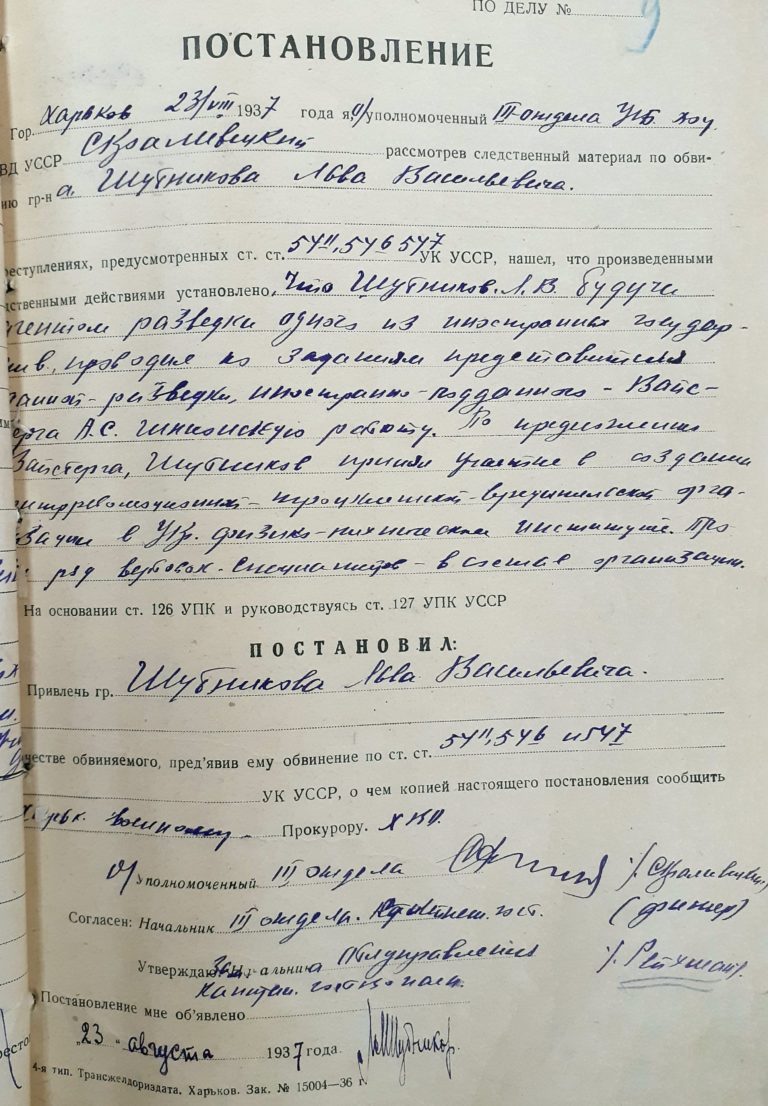 ПО ДЕЛУ № 9
ПОСТАНОВЛЕНИЕ
Гор. Харьков 23/VIII 1937 года я, о/уполномоченный III отдела УГБ ХОУ
ВД УССР Скраливецкий рассмотрев следственный материал по обви-
ию гр-на Шубникова Льва Васильевича.
реступлениях, предусмотренных ст. ст. 54-11, 54-6 54-7 УК УССР, нашел, что произведенными
дственными действиями установлено, что Шубников Л.В. будучи
агентом разведки одного из иностранных государ-
ств, проводил по заданиям представителя
данной разведки, иностранно-подданного - Вайс-
ерга А.С. шпионскую работу. По предложению
Вайсберга, Шубников принял участие в создании
нтрреволюционной - вредительской орга-
изации в Укр. физико-техническом институте.
ряд вербовок специалистов - в состав организации.
На основании ст. 126 УПК и руководствуясь ст. 127 УПК УССР
ПОСТАНОВИЛ:
Привлечь гр. Шубникова Льва Васильевича.
честве обвиняемого, пред'явив ему обвинение по ст. ст. 54-11, 54-6 и 54-7
УК УССР, о чем копией настоящего постановления сообщить
Харьк. военному Прокурору. ХВО
О/Уполномоченный III отдела /Скраливецкий/
Согласен: Начальник III отдела. гост. (Фишер)
Утверждаю: Зам. Начальника Облуправления /Рейхман/.
Капитан госбезопасн.
Постановление мне об'явлено ЛШубников
„23" августа 1937 года.
4-я тип. Трансжелдориздата. Харьков. Зак. № 15004—36 г.